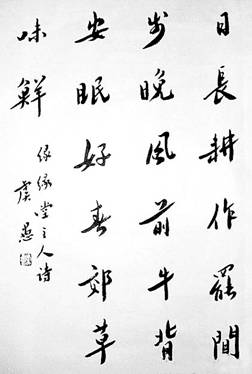 日長耕作罷閒
步晚風前牛背
安眠好春郊草
味鮮
緣緣堂主人詩
虞愚